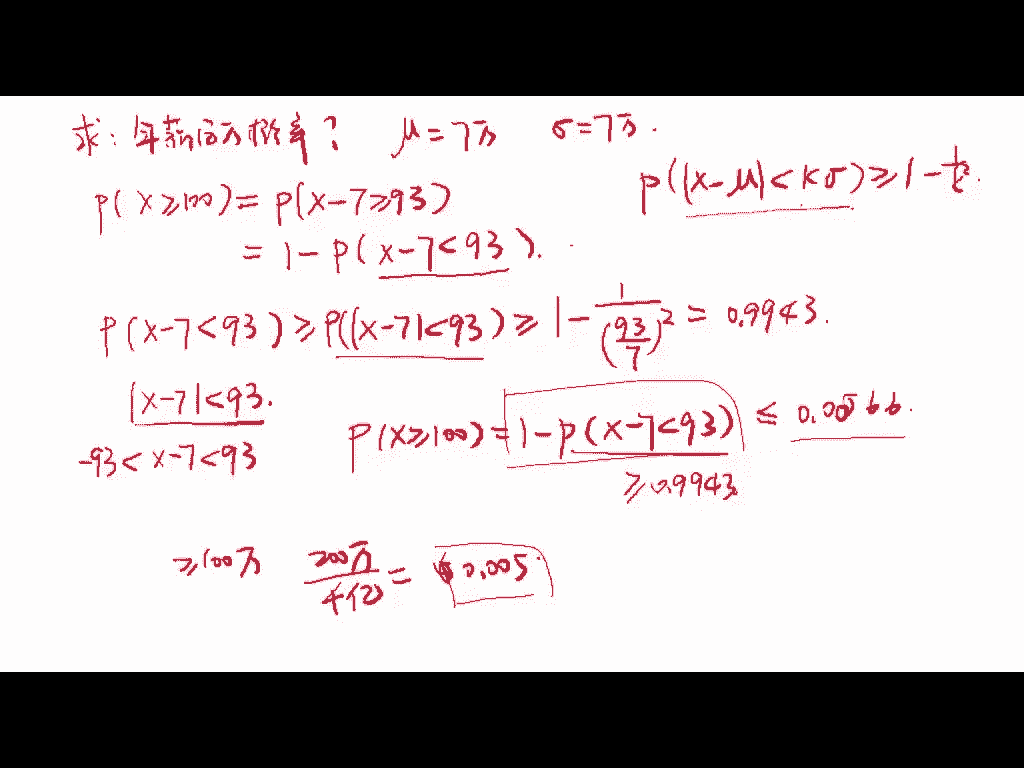 求：年薪百万概率？ μ=7万 σ=7万.
P(|X-μ|<kσ)≥1-1/k².
P(X≥100)=P(X-7≥93)
=1-P(X-7<93).
P(X-7<93)≥P(|X-7|<93)≥1-1/(93/7)²=0.9943.
|X-7|<93.
-93<X-7<93
P(X≥100)=1-P(X-7<93)≤0.00566.
≥0.9943
≥100万 200万/4亿=0.005